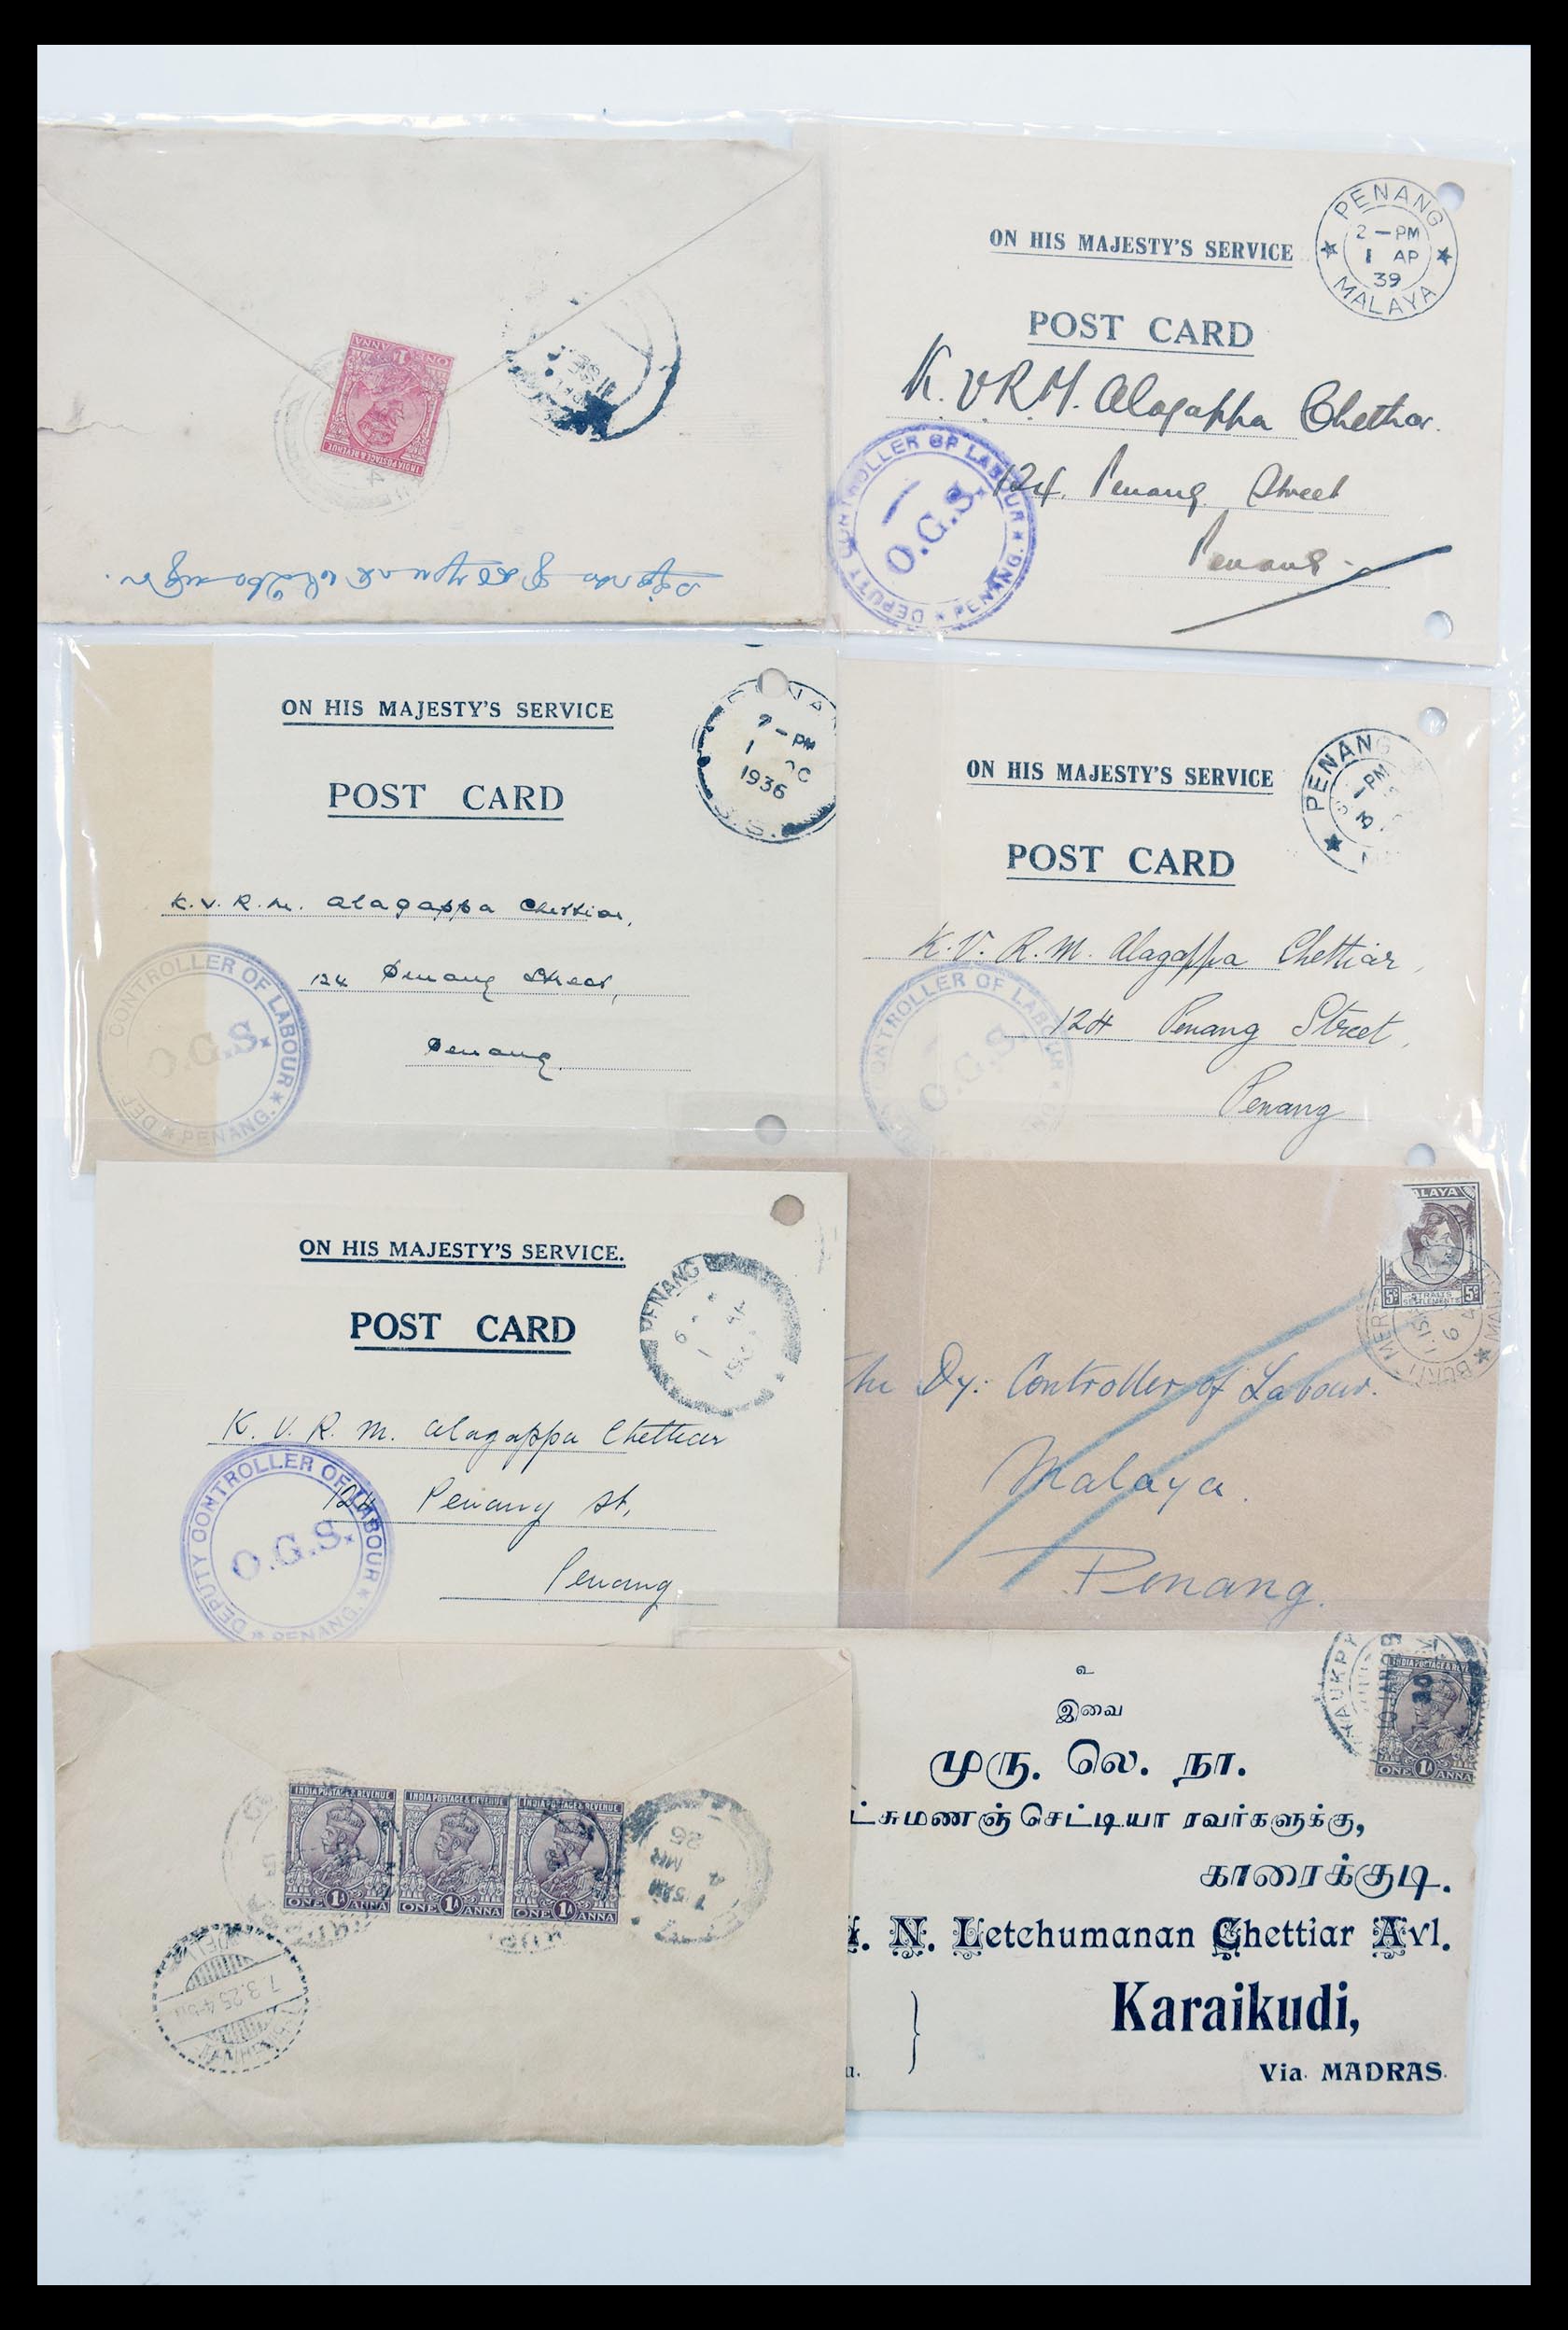 ONE ANNA
INDIA POSTAGE & REVENUE
ON HIS MAJESTY'S SERVICE
PENANG
2 - PM
1 AP
39
MALAYA
POST CARD
K. V R M. Alagappa Chettiar.
124, Penang Street
Penang
DEPUTY CONTROLLER OF LABOUR
O.G.S.
PENANG.
ON HIS MAJESTY'S SERVICE
- PM
1936
S.S.
POST CARD
K. V. R. M. Alagappa Chettiar,
124 Penang Street,
Penang.
CONTROLLER OF LABOUR
O.G.S.
PENANG.
ON HIS MAJESTY'S SERVICE
PENANG
POST CARD
K. V. R. M. Alagappa Chettiar,
124 Penang Street,
Penang
CONTROLLER OF LABOUR
O.G.S.
ON HIS MAJESTY'S SERVICE.
PENANG
POST CARD
K. V. R. M. Alagappa Chettiar
124 Penang St,
Penang
DEPUTY CONTROLLER OF LABOUR
O.G.S.
PENANG.
MALAYA
5c 5c
STRAITS SETTLEMENTS
The Dy: Controller of Labour.
Malaya.
Penang.
INDIA POSTAGE & REVENUE
ONE 1A ANNA
INDIA POSTAGE & REVENUE
ONE 1A ANNA
INDIA POSTAGE & REVENUE
ONE 1A ANNA
4 MR 26
7.3.25
உ
இவை
முரு. லெ. நா.
ட்சுமணஞ் செட்டியா ரவர்களுக்கு,
காரைக்குடி.
N. Letchumanan Chettiar Avl.
Karaikudi,
Via. MADRAS.
INDIA POSTAGE & REVE
ONE 1A ANNA